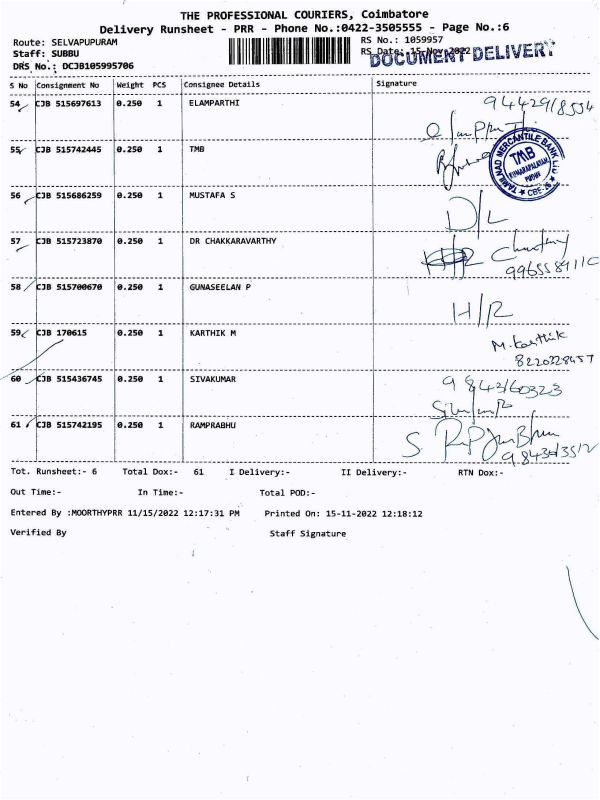 THE PROFESSIONAL COURIERS, Coimbatore
Delivery Runsheet - PRR - Phone No.:0422-3505555 - Page No.:6
Route: SELVAPUPURAM
RS No.: 1059957
Staff: SUBBU
RS Date: 15-Nov-2022
DOCUMENT DELIVERY
DRS No.: DCJB105995706
S No Consignment No Weight PCS Consignee Details Signature
54 CJB 515697613 0.250 1 ELAMPARTHI
55 CJB 515742445 0.250 1 TMB
TAMILNAD MERCANTILE BANK LTD
TMB
CBE
56 CJB 515686259 0.250 1 MUSTAFA S D/L
57 CJB 515723870 0.250 1 DR CHAKKARAVARTHY
58 CJB 515700670 0.250 1 GUNASEELAN P H/R
59 CJB 170615 0.250 1 KARTHIK M M. Karthik
8220328457
60 CJB 515436745 0.250 1 SIVAKUMAR 9843160323
61 CJB 515742195 0.250 1 RAMPRABHU
Tot. Runsheet:- 6 Total Dox:- 61 I Delivery:- II Delivery:- RTN Dox:-
Out Time:- In Time:- Total POD:-
Entered By :MOORTHYPRR 11/15/2022 12:17:31 PM Printed On: 15-11-2022 12:18:12
Verified By Staff Signature